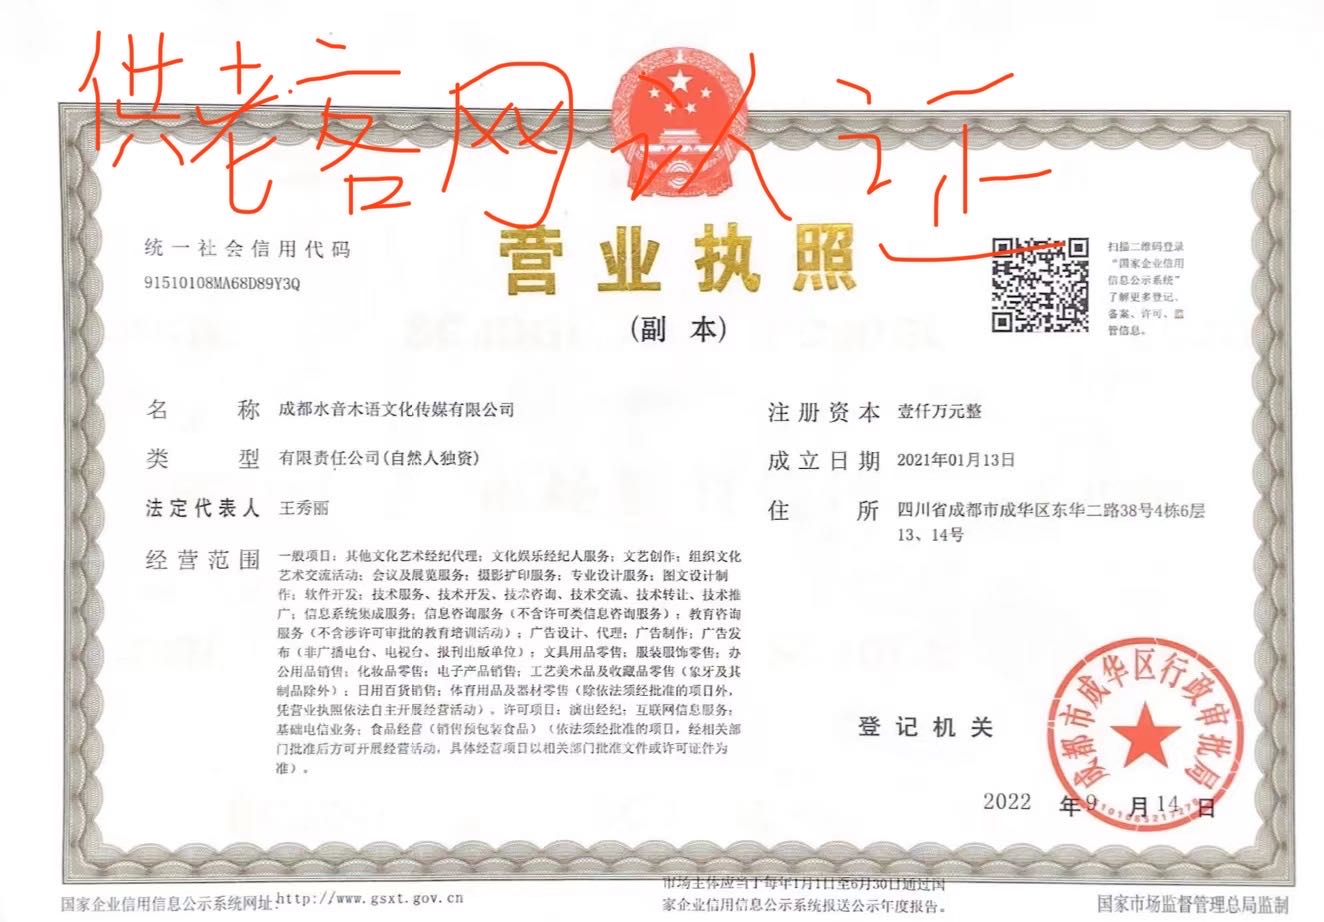 供老客网认证
统一社会信用代码
91510108MA68D89Y3Q
营业执照
(副 本)
扫描二维码登录
“国家企业信用
信息公示系统”
了解更多登记、
备案、许可、监
管信息。
名 称 成都水音木语文化传媒有限公司
类 型 有限责任公司(自然人独资)
法定代表人 王秀丽
经营范围 一般项目：其他文化艺术经纪代理；文化娱乐经纪人服务；文艺创作；组织文化
艺术交流活动；会议及展览服务；摄影扩印服务；专业设计服务；图文设计制
作；软件开发；技术服务、技术开发、技术咨询、技术交流、技术转让、技术推
广；信息系统集成服务；信息咨询服务（不含许可类信息咨询服务）；教育咨询
服务（不含涉许可审批的教育培训活动）；广告设计、代理；广告制作；广告发
布（非广播电台、电视台、报刊出版单位）；文具用品零售；服装服饰零售；办
公用品销售；化妆品零售；电子产品销售；工艺美术品及收藏品零售（象牙及其
制品除外）；日用百货销售；体育用品及器材零售（除依法须经批准的项目外，
凭营业执照依法自主开展经营活动）。许可项目：演出经纪；互联网信息服务；
基础电信业务；食品经营（销售预包装食品）（依法须经批准的项目，经相关部
门批准后方可开展经营活动，具体经营项目以相关部门批准文件或许可证件为
准）。
注册资本 壹仟万元整
成立日期 2021年01月13日
住 所 四川省成都市成华区东华二路38号4栋6层
13、14号
登记机关
成都市成华区行政审批局
2022 年 9 月 14 日
国家企业信用信息公示系统网址：http://www.gsxt.gov.cn
市场主体应当于每年1月1日至6月30日通过国
家企业信用信息公示系统报送公示年度报告。
国家市场监督管理总局监制